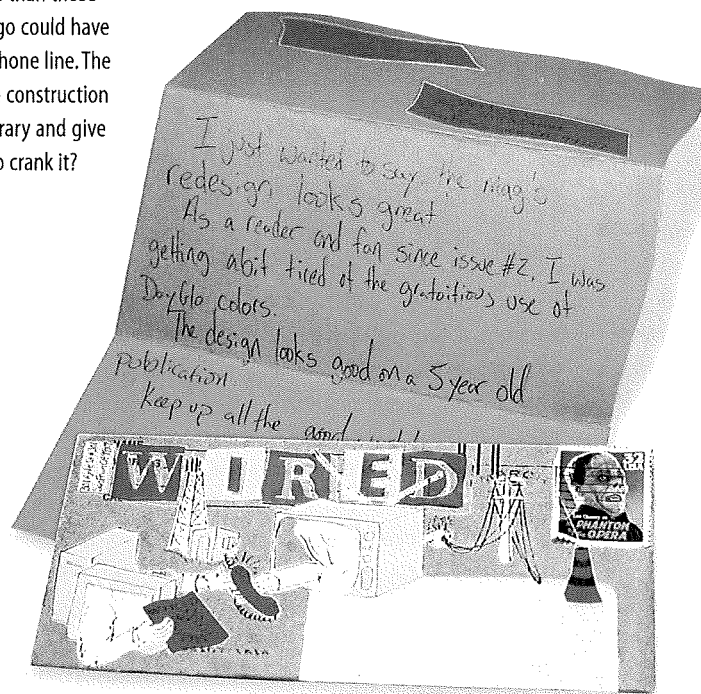 than these
go could have
hone line. The
construction
rary and give
o crank it?
I just wanted to say, the mag's
redesign looks great
As a reader and fan since issue #2, I was
getting abit tired of the gratoitious use of
DayGlo colors.
The design looks good on a 5 year old
publication
Keep up all the good
WIRED
32
Lon Chaney as
PHANTOM
OPERA